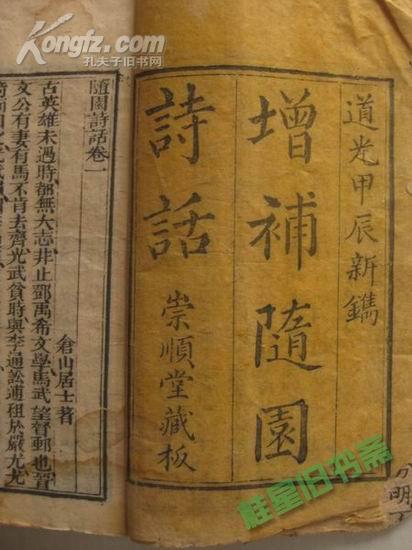 Kongfz.com
孔夫子旧书网
道光甲辰新鐫
增補隨園
詩話
崇順堂藏板
隨園詩話卷一
倉山居士著
古英雄未遇時都無大志非止鄧禹希文學馬武望督郵也晉
文公有妻有馬不肯去齊光武貧時與李通訟逋租於嚴尤尤
桂星旧书斋